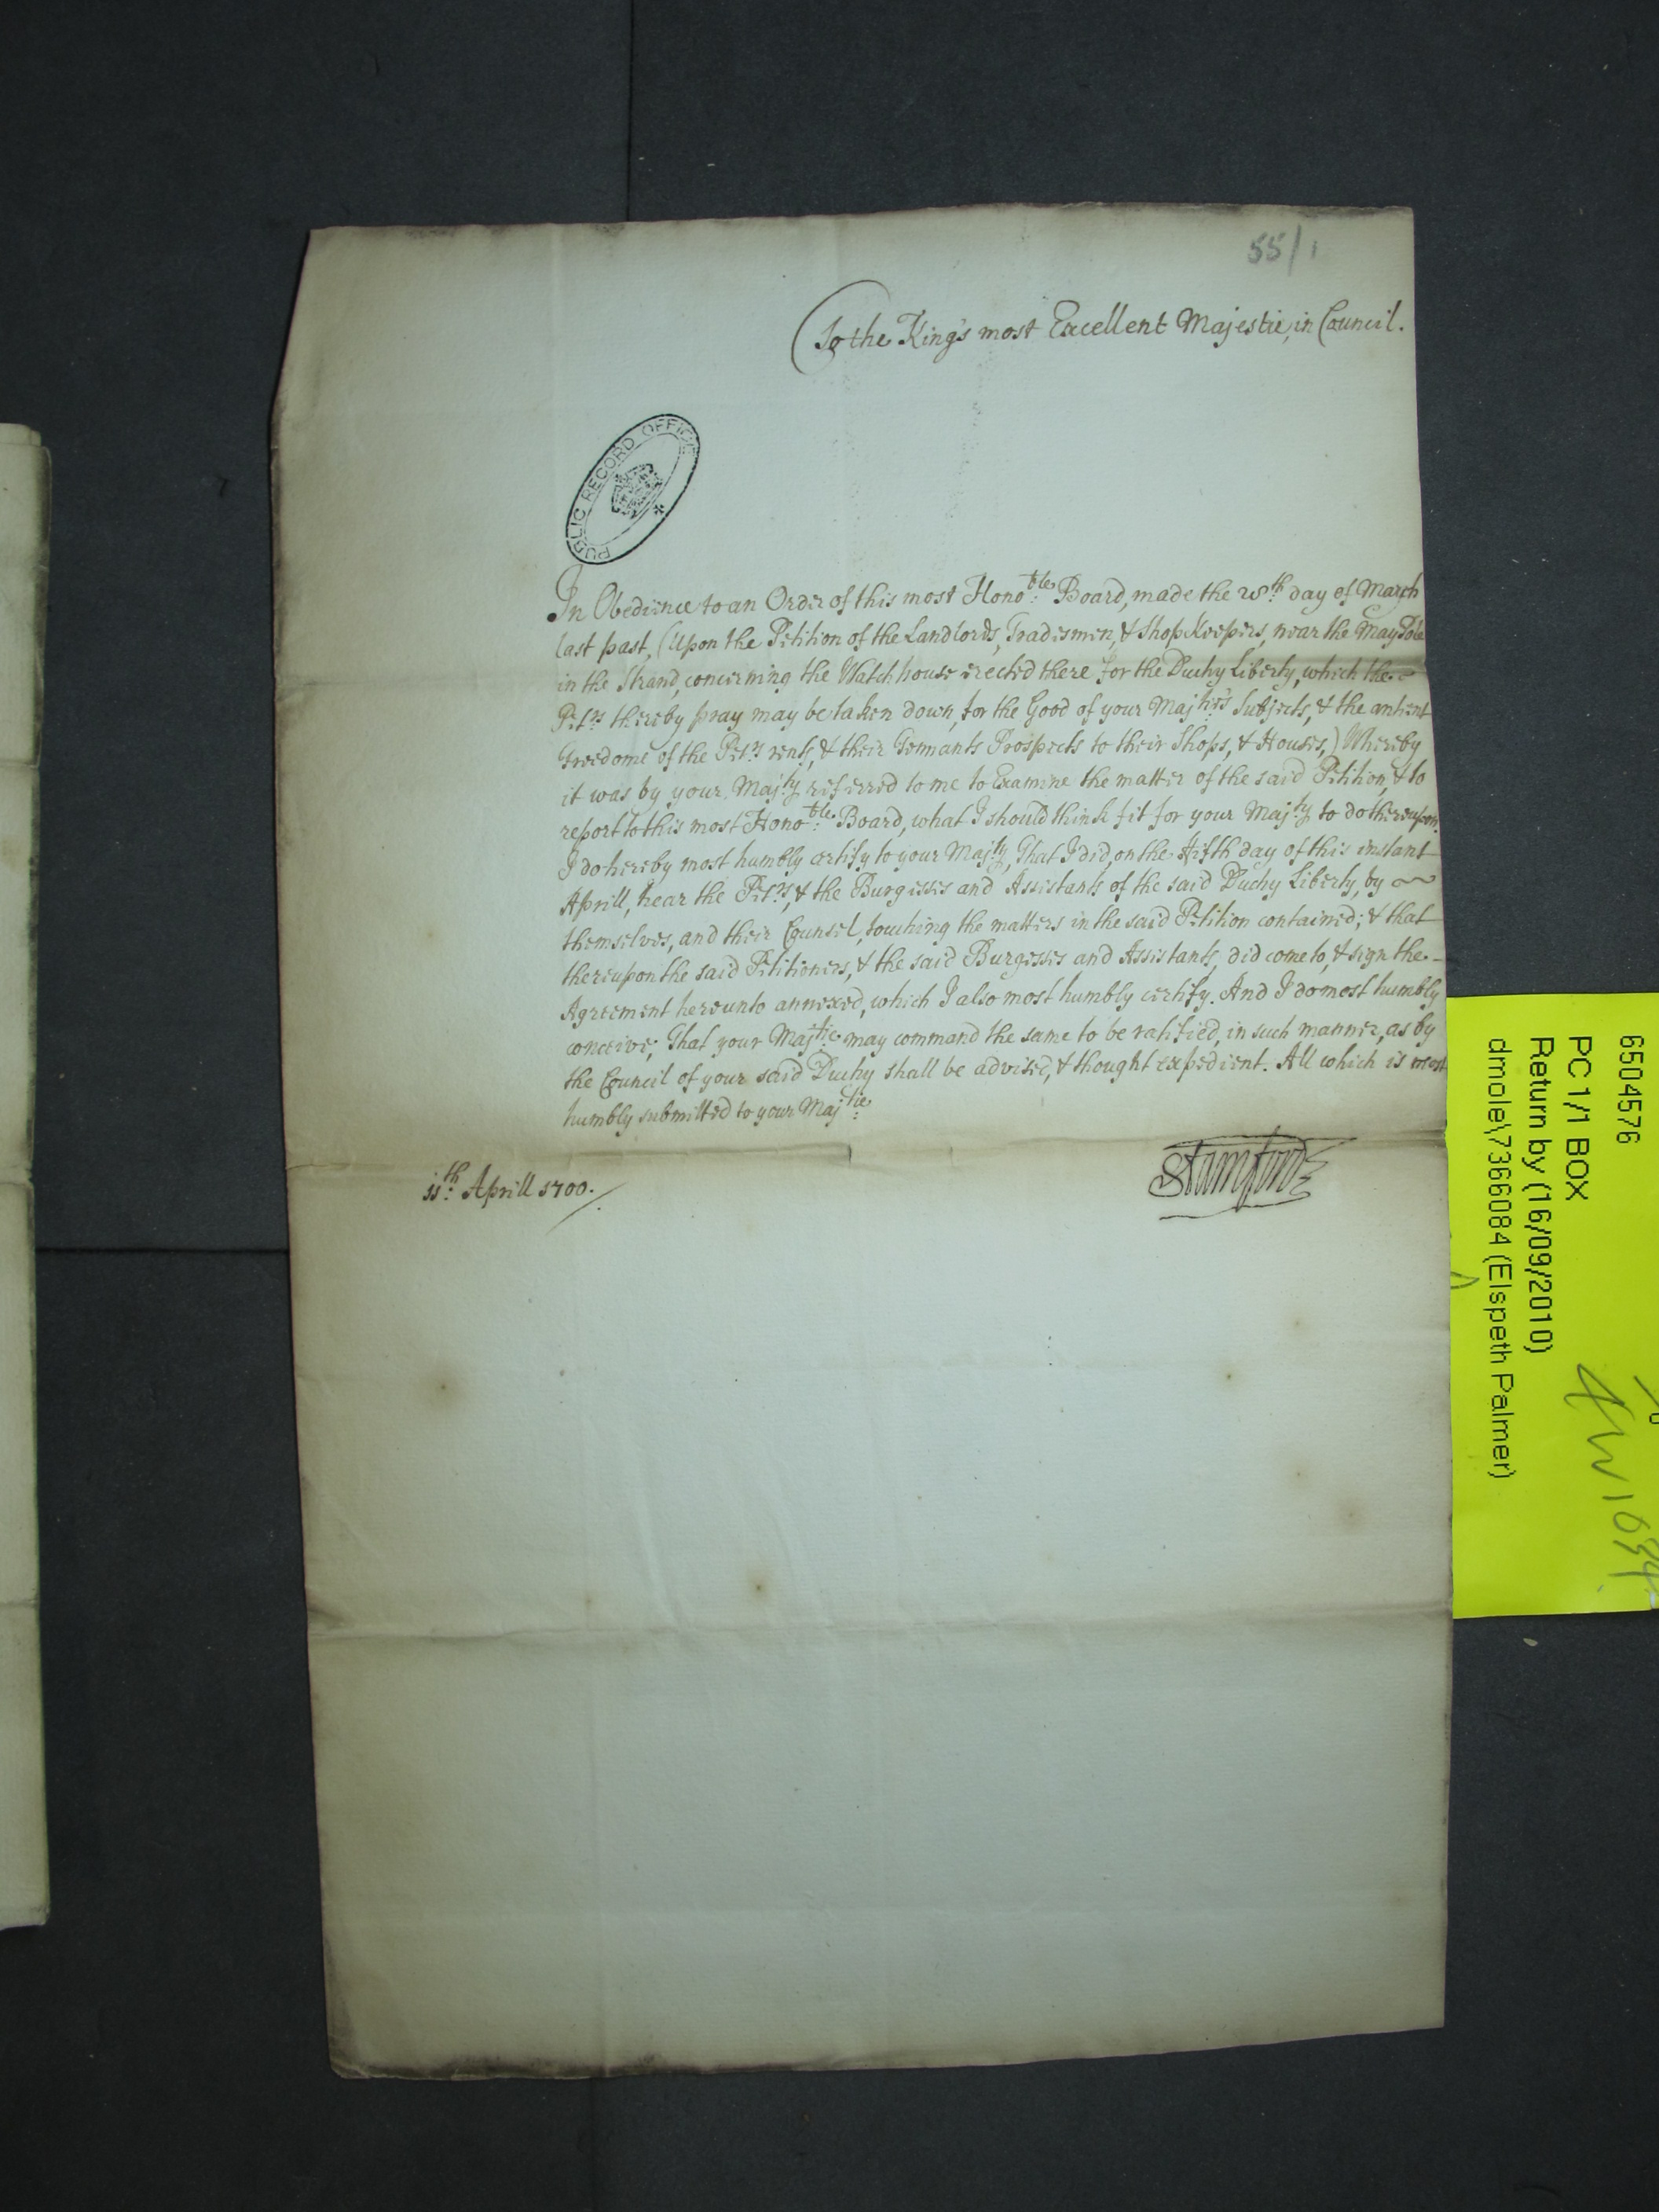 55/1
To the King's most Excellent Majestie, in Council.
PUBLIC RECORD OFFICE
In Obedience to an Order of this most Hono:ble Board, made the 28:th day of March
last past, (Upon the Petition of the Landlords, Tradesmen, & Shop Keepers, near the May Pole
in the Strand, concerning the Watch house erected there for the Duchy Liberty, which the
Pet:rs thereby pray may be taken down, for the Good of your Maj:ties Subjects, & the antient
Freedome of the Pet:rs rents, & their Tennants Prospects to their Shops, & Houses,) Whereby
it was by your Maj:ty referred to me to Examine the matter of the said Petition, & to
report to this most Hono:ble Board, what I should think fit for your Maj:ty to do thereupon.
I do hereby most humbly certify to your Maj:ty, That I did, on the Fifth day of this instant
Aprill, hear the Pet:rs, & the Burgesses and Assistants of the said Duchy Liberty, by
themselves, and their Counsel, touching the matters in the said Petition contained; & that
thereupon the said Petitioners, & the said Burgesses and Assistants, did come to, & sign the
Agreement hereunto annexed, which I also most humbly certify. And I do most humbly
conceive; That your Maj:tie may command the same to be ratified, in such manner, as by
the Council of your said Duchy shall be advised, & thought expedient. All which is most
humbly submitted to your Maj:tie
11:th Aprill 1700.
Stamford
6504576
PC 1/1 BOX
Return by (16/09/2010)
dmole\7366084 (Elspeth Palmer)